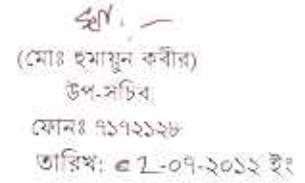 স্বাঃ -
(মোঃ হুমায়ুন কবীর)
উপ-সচিব
ফোনঃ ৭১৭২১২৮
তারিখ: ০1-০৭-২০১২ ইং